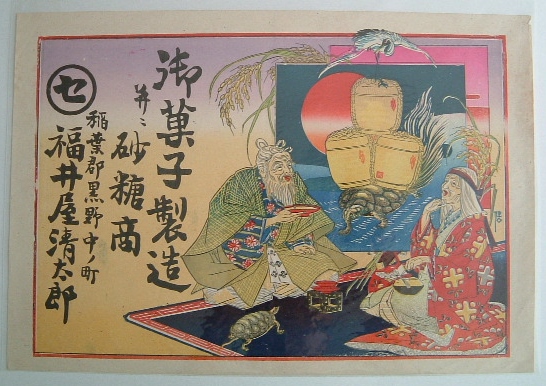 御菓子製造
并ニ砂糖商
稲葉郡黒野中ノ町
福井屋清太郎
セ